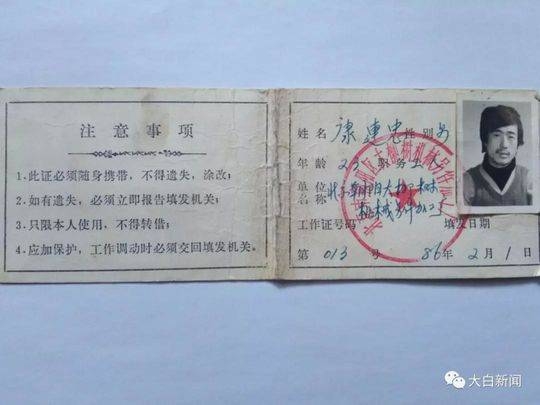 注意事项
1、此证必须随身携带，不得遗失，涂改；
2、如有遗失，必须立即报告填发机关；
3、只限本人使用，不得转借；
4、应加保护，工作调动时必须交回填发机关。
姓名 康建忠 性别 男
年龄 23 职务 工人
单位
名称
工作证号码 填发日期
第 013 号 86年2月1日
大白新闻